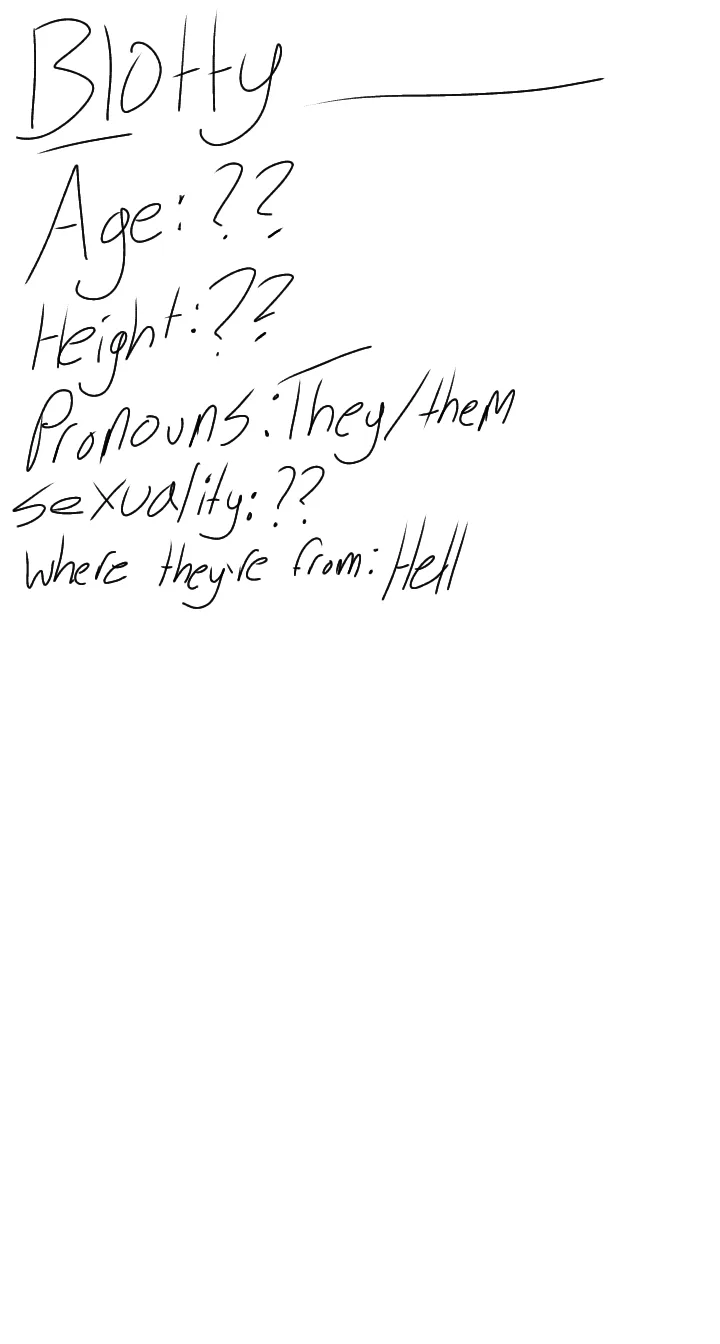 Blotty
Age: ??
Height: ??
Pronouns: They/them
sexuality: ??
Where they're from: Hell